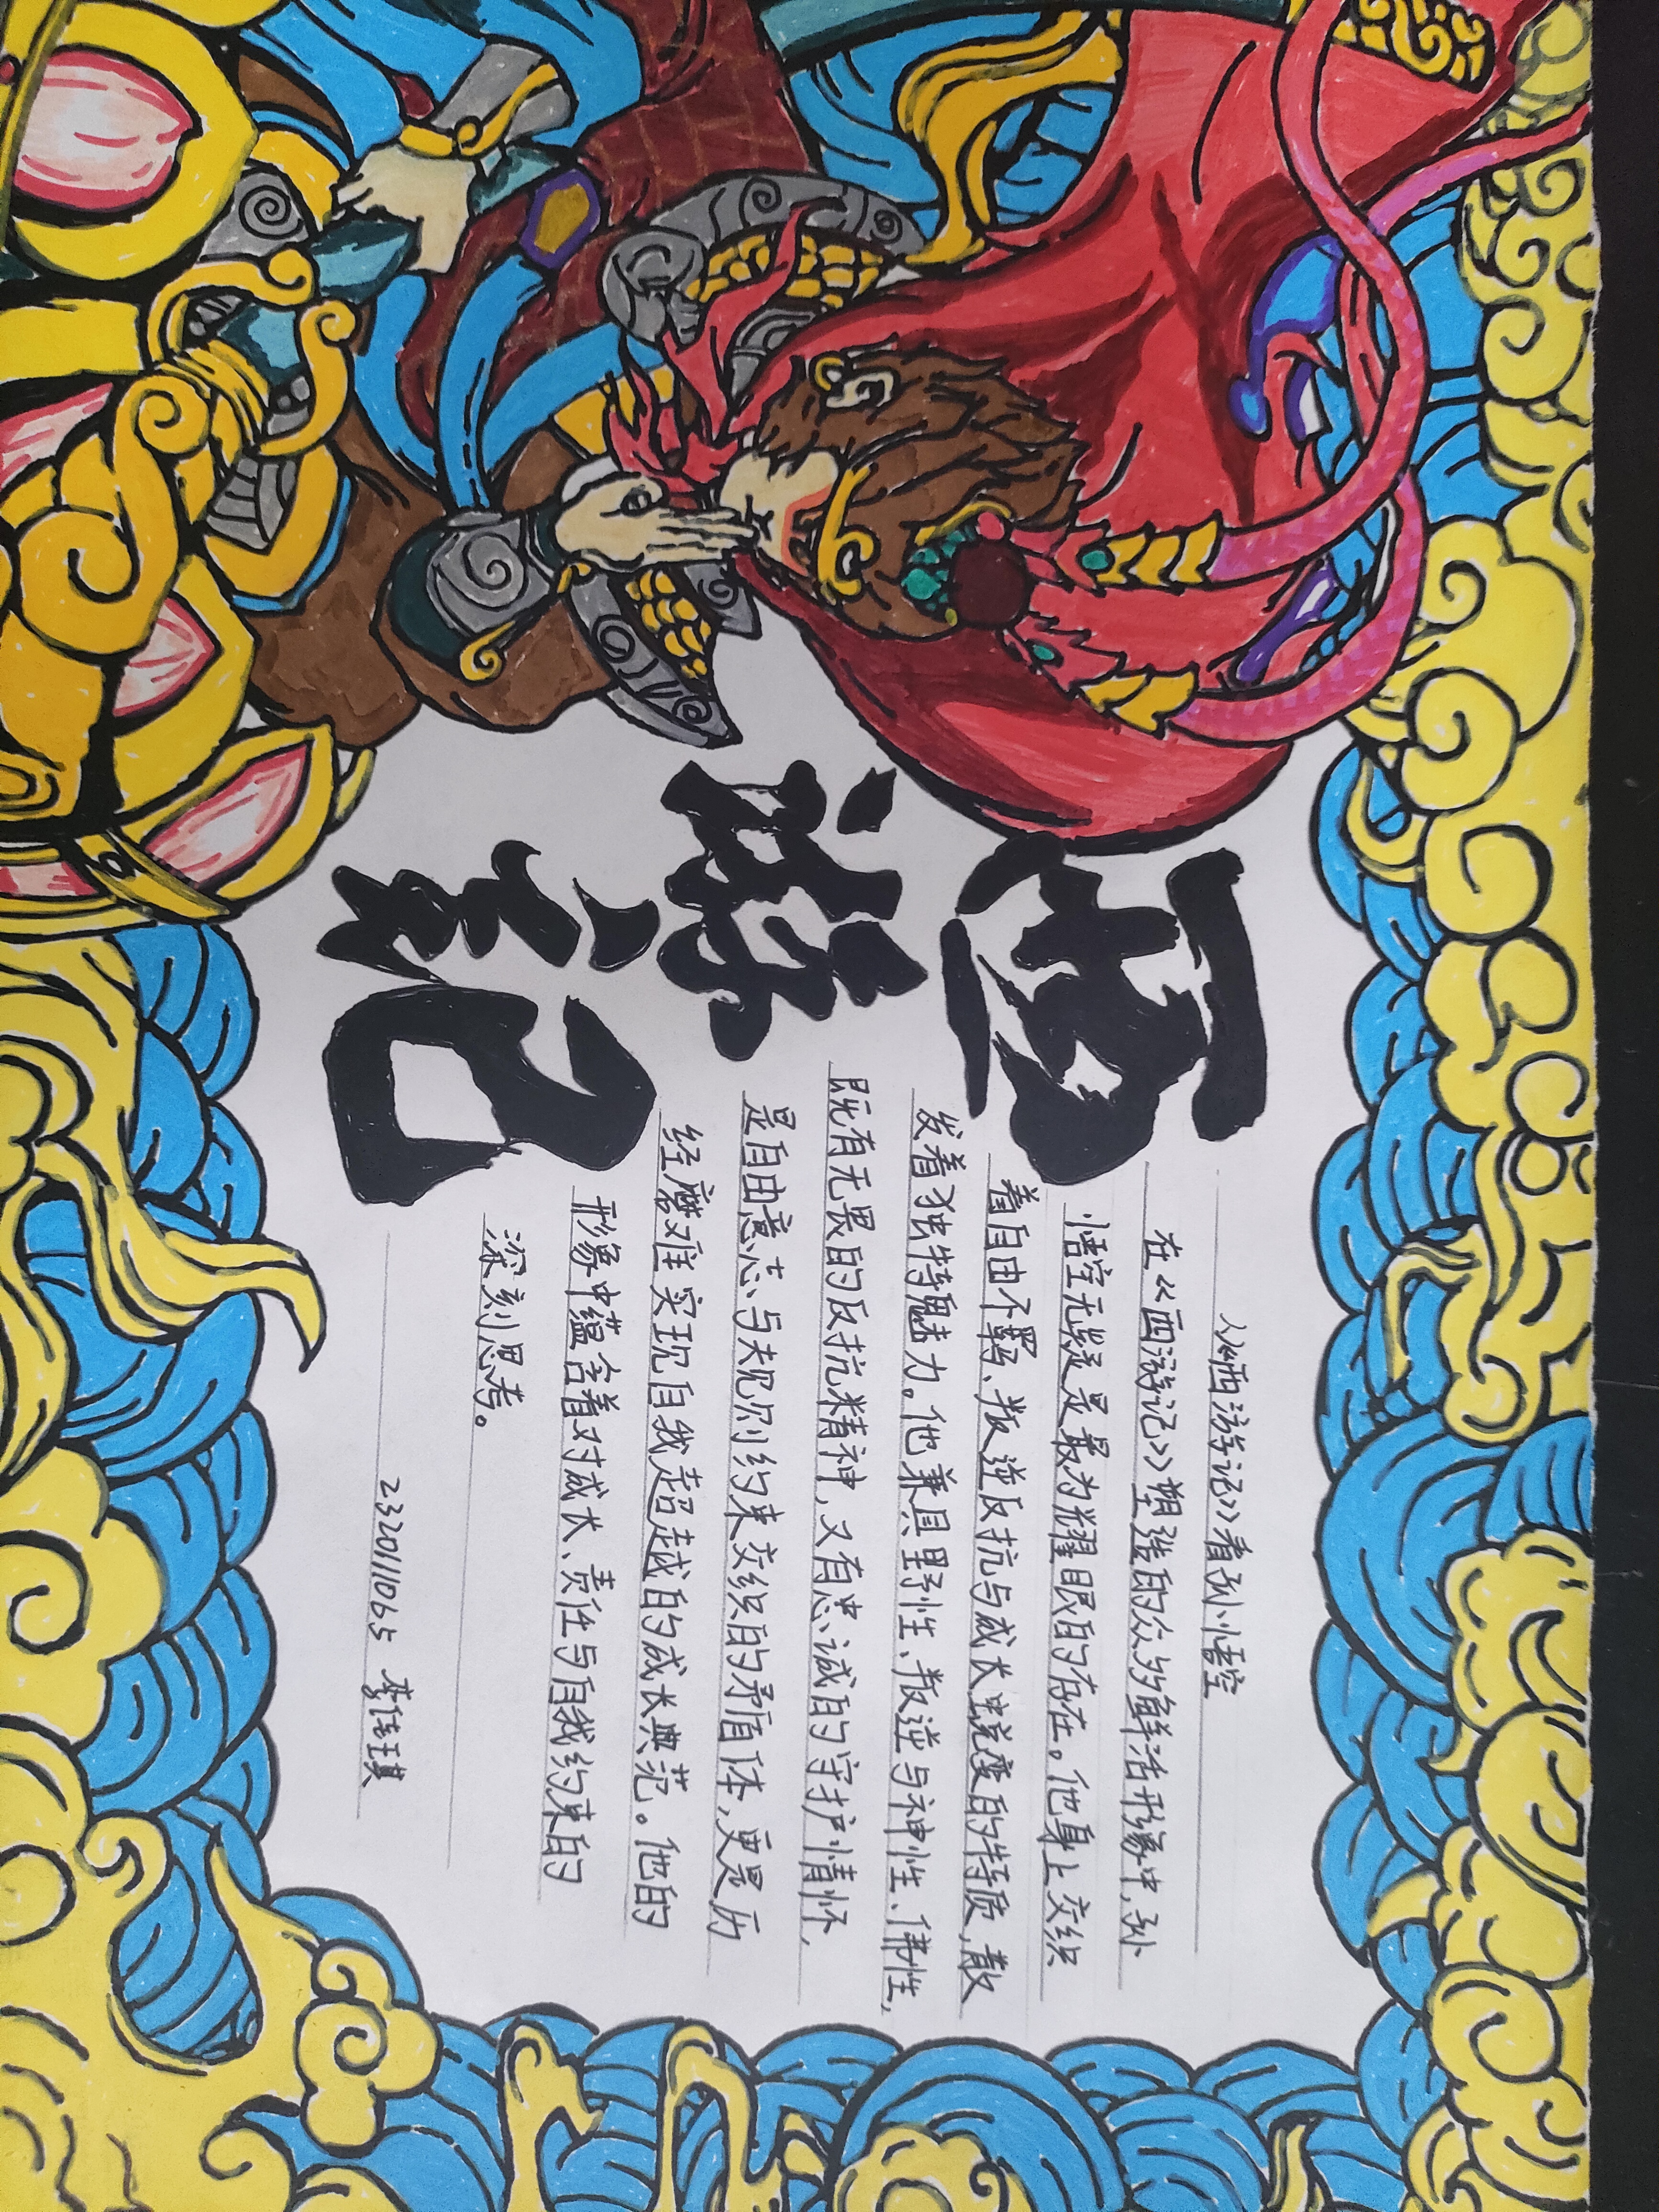 西游记
从《西游记》看孙悟空
在《西游记》塑造的众多鲜活形象中,孙
悟空无疑是最为耀眼的存在。他身上交织
着自由不羁、叛逆反抗与成长蜕变的特质,散
发着独特魅力。他兼具野性、叛逆与神性、佛性,
既有无畏的反抗精神,又有忠诚的守护情怀,
是自由意志与规则约束交织的矛盾体,更是历
经磨难实现自我超越的成长典范。他的
形象中蕴含着对成长、责任与自我约束的
深刻思考。
2320111065 李佳琪